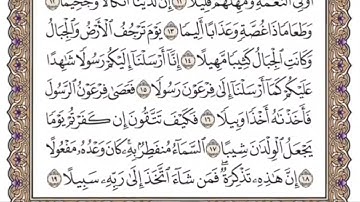 أُو۟لِى ٱلنَّعْمَةِ وَمَهِّلْهُمْ قَلِيلًا ١١ إِنَّ لَدَيْنَآ أَنكَالًا وَجَحِيمًا ١٢
وَطَعَامًا ذَا غُصَّةٍ وَعَذَابًا أَلِيمًا ١٣ يَوْمَ تَرْجُفُ ٱلْأَرْضُ وَٱلْجِبَالُ
وَكَانَتِ ٱلْجِبَالُ كَثِيبًا مَّهِيلًا ١٤ إِنَّآ أَرْسَلْنَآ إِلَيْكُمْ رَسُولًا شَٰهِدًا
عَلَيْكُمْ كَمَآ أَرْسَلْنَآ إِلَىٰ فِرْعَوْنَ رَسُولًا ١٥ فَعَصَىٰ فِرْعَوْنُ ٱلرَّسُولَ
فَأَخَذْنَٰهُ أَخْذًا وَبِيلًا ١٦ فَكَيْفَ تَتَّقُونَ إِن كَفَرْتُمْ يَوْمًا
يَجْعَلُ ٱلْوِلْدَٰنَ شِيبًا ١٧ ٱلسَّمَآءُ مُنفَطِرٌۢ بِهِۦ كَانَ وَعْدُهُۥ مَفْعُولًا
١٨ إِنَّ هَٰذِهِۦ تَذْكِرَةٌ فَمَن شَآءَ ٱتَّخَذَ إِلَىٰ رَبِّهِۦ سَبِيلًا ١٩